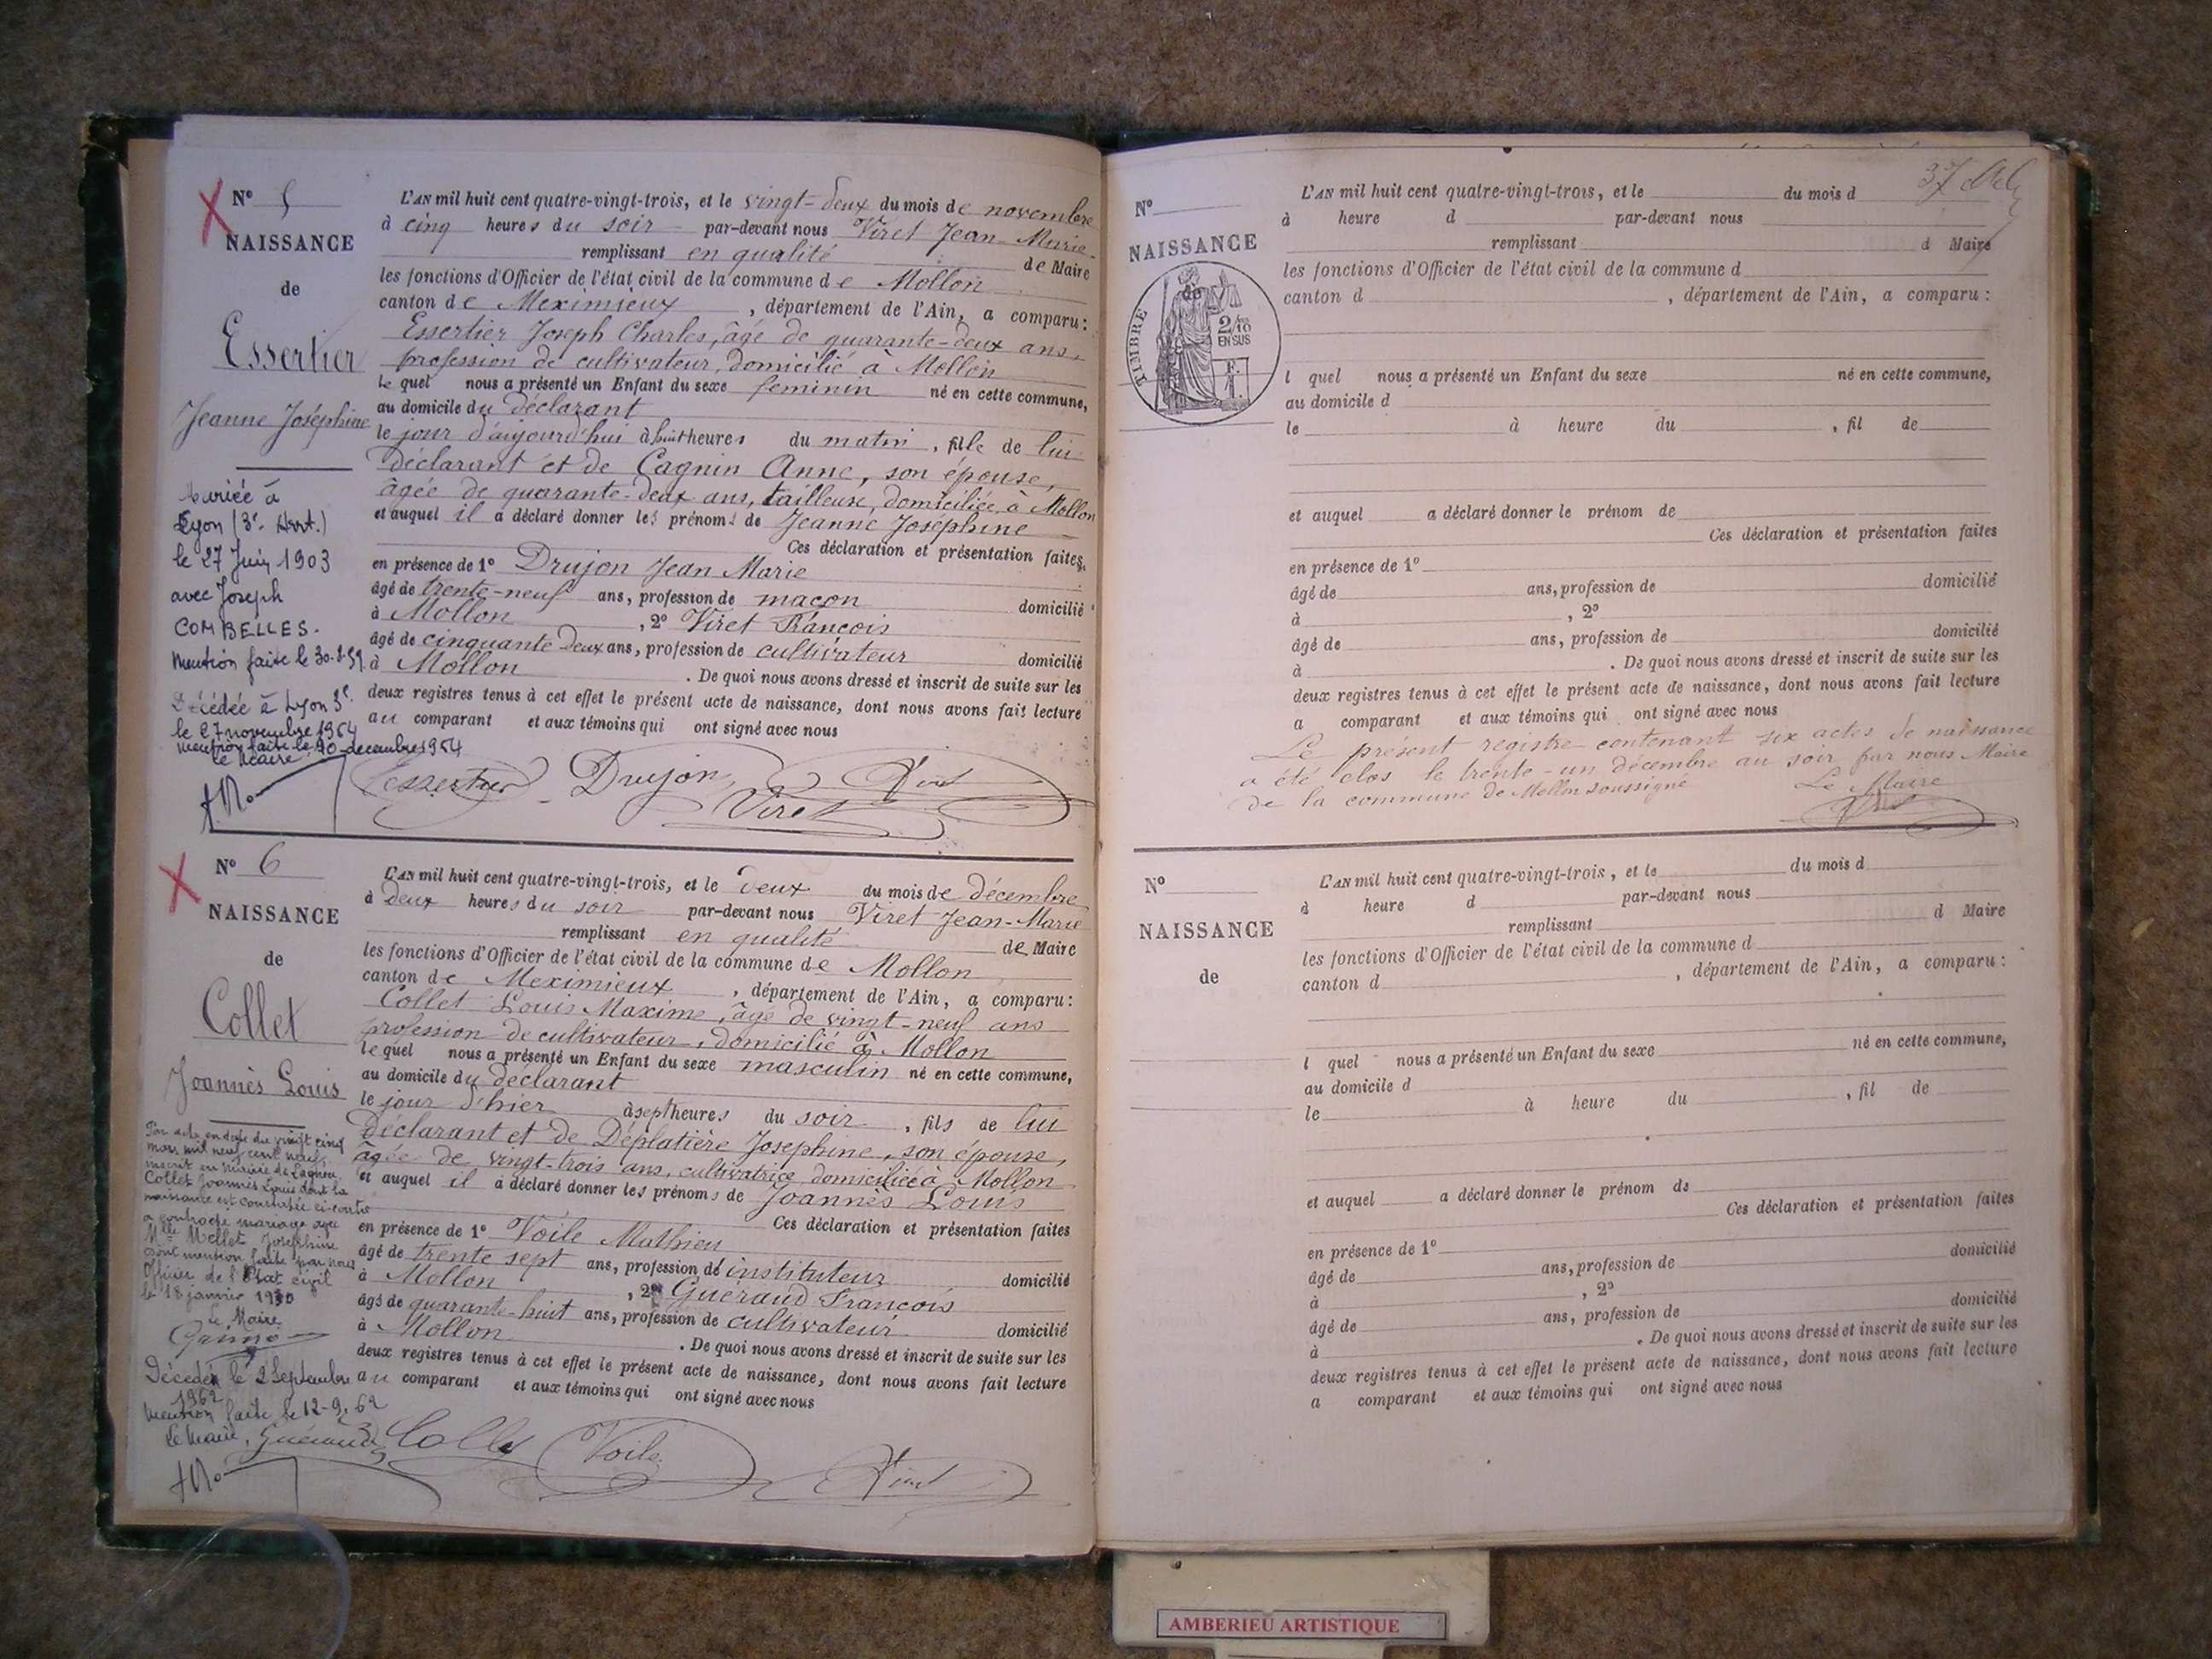 N° 5
NAISSANCE
de
Essertier
Jeanne Joséphine
Mariée à
Lyon (3e Arrt.)
le 27 Juin 1903
avec Joseph
COMBELLES.
Mention faite le
Décédée à Lyon 3e
le 27 novembre 1964
mention faite le 10 decembre 1964
le Maire.
L'AN mil huit cent quatre-vingt-trois, et le vingt-deux du mois de novembre
à cinq heures du soir par-devant nous Viret Jean-Marie
remplissant en qualité de Maire
les fonctions d'Officier de l'état civil de la commune de Mollon
canton de Meximieux, département de l'Ain, a comparu:
Essertier Joseph Charles, âgé de quarante-deux ans,
profession de cultivateur, domicilié à Mollon
le quel nous a présenté un Enfant du sexe feminin né en cette commune,
au domicile du déclarant
le jour d'aujourd'hui à huit heures du matin, fille de lui
déclarant et de Cagnin Anne, son épouse,
âgée de quarante-deux ans, tailleuse, domiciliée à Mollon
et auquel il a déclaré donner les prénoms de Jeanne Joséphine
Ces déclaration et présentation faites,
en présence de 1° Drujon Jean Marie
âgé de trente-neuf ans, profession de maçon domicilié
à Mollon, 2° Viret François
âgé de cinquante deux ans, profession de cultivateur domicilié
à Mollon. De quoi nous avons dressé et inscrit de suite sur les
deux registres tenus à cet effet le présent acte de naissance, dont nous avons fait lecture
au comparant et aux témoins qui ont signé avec nous
Essertier Drujon Viret
Viret
N° 6
NAISSANCE
de
Collet
Joannès Louis
Par acte en date du vingt cinq
mars mil neuf cent neuf,
inscrit en Mairie de Lagnieu
Collet Joannès Louis dont la
naissance est constatée ci-contre
a contracté mariage avec
Melle Mollet Joséphine
dont mention faite par nous
Officier de l'Etat civil
le 18 janvier 1910
Le Maire
Décédé le 2 Septembre
1962
Mention faite le 12-9.62
Le Maire,
L'AN mil huit cent quatre-vingt-trois, et le deux du mois de décembre
à deux heures du soir par-devant nous Viret Jean-Marie
remplissant en qualité de Maire
les fonctions d'Officier de l'état civil de la commune de Mollon
canton de Meximieux, département de l'Ain, a comparu:
Collet Louis Maxime, âgé de vingt-neuf ans
profession de cultivateur, domicilié à Mollon
le quel nous a présenté un Enfant du sexe masculin né en cette commune,
au domicile du déclarant
le jour d'hier à sept heures du soir, fils de lui
déclarant et de Déplatière Josephine, son épouse,
âgée de vingt-trois ans, cultivatrice, domiciliée à Mollon
et auquel il a déclaré donner les prénoms de Joannès Louis
Ces déclaration et présentation faites
en présence de 1° Voile Mathieu
âgé de trente sept ans, profession de instituteur domicilié
à Mollon, 2° Guéraud François
âgé de quarante-huit ans, profession de cultivateur domicilié
à Mollon. De quoi nous avons dressé et inscrit de suite sur les
deux registres tenus à cet effet le présent acte de naissance, dont nous avons fait lecture
au comparant et aux témoins qui ont signé avec nous
Guéraud Collet Voile Viret
37
N°
NAISSANCE
de
TIMBRE
2/10
EN SUS
L'AN mil huit cent quatre-vingt-trois, et le du mois d
à heure d par-devant nous
remplissant d Maire
les fonctions d'Officier de l'état civil de la commune d
canton d , département de l'Ain, a comparu:
l quel nous a présenté un Enfant du sexe né en cette commune,
au domicile d
le à heure du , fil de
et auquel a déclaré donner le prénom de
Ces déclaration et présentation faites
en présence de 1°
âgé de ans, profession de domicilié
à , 2°
âgé de ans, profession de domicilié
à . De quoi nous avons dressé et inscrit de suite sur les
deux registres tenus à cet effet le présent acte de naissance, dont nous avons fait lecture
a comparant et aux témoins qui ont signé avec nous
Le présent registre contenant six actes de naissance
a été clos le trente-un décembre au soir par nous Maire
de la commune de Mollon soussigné
Le Maire
Viret
N°
NAISSANCE
de
L'AN mil huit cent quatre-vingt-trois, et le du mois d
à heure d par-devant nous
remplissant d Maire
les fonctions d'Officier de l'état civil de la commune d
canton d , département de l'Ain, a comparu:
l quel nous a présenté un Enfant du sexe né en cette commune,
au domicile d
le à heure du , fil de
et auquel a déclaré donner le prénom de
Ces déclaration et présentation faites
en présence de 1°
âgé de ans, profession de domicilié
à , 2°
âgé de ans, profession de domicilié
à . De quoi nous avons dressé et inscrit de suite sur les
deux registres tenus à cet effet le présent acte de naissance, dont nous avons fait lecture
a comparant et aux témoins qui ont signé avec nous
AMBERIEU ARTISTIQUE